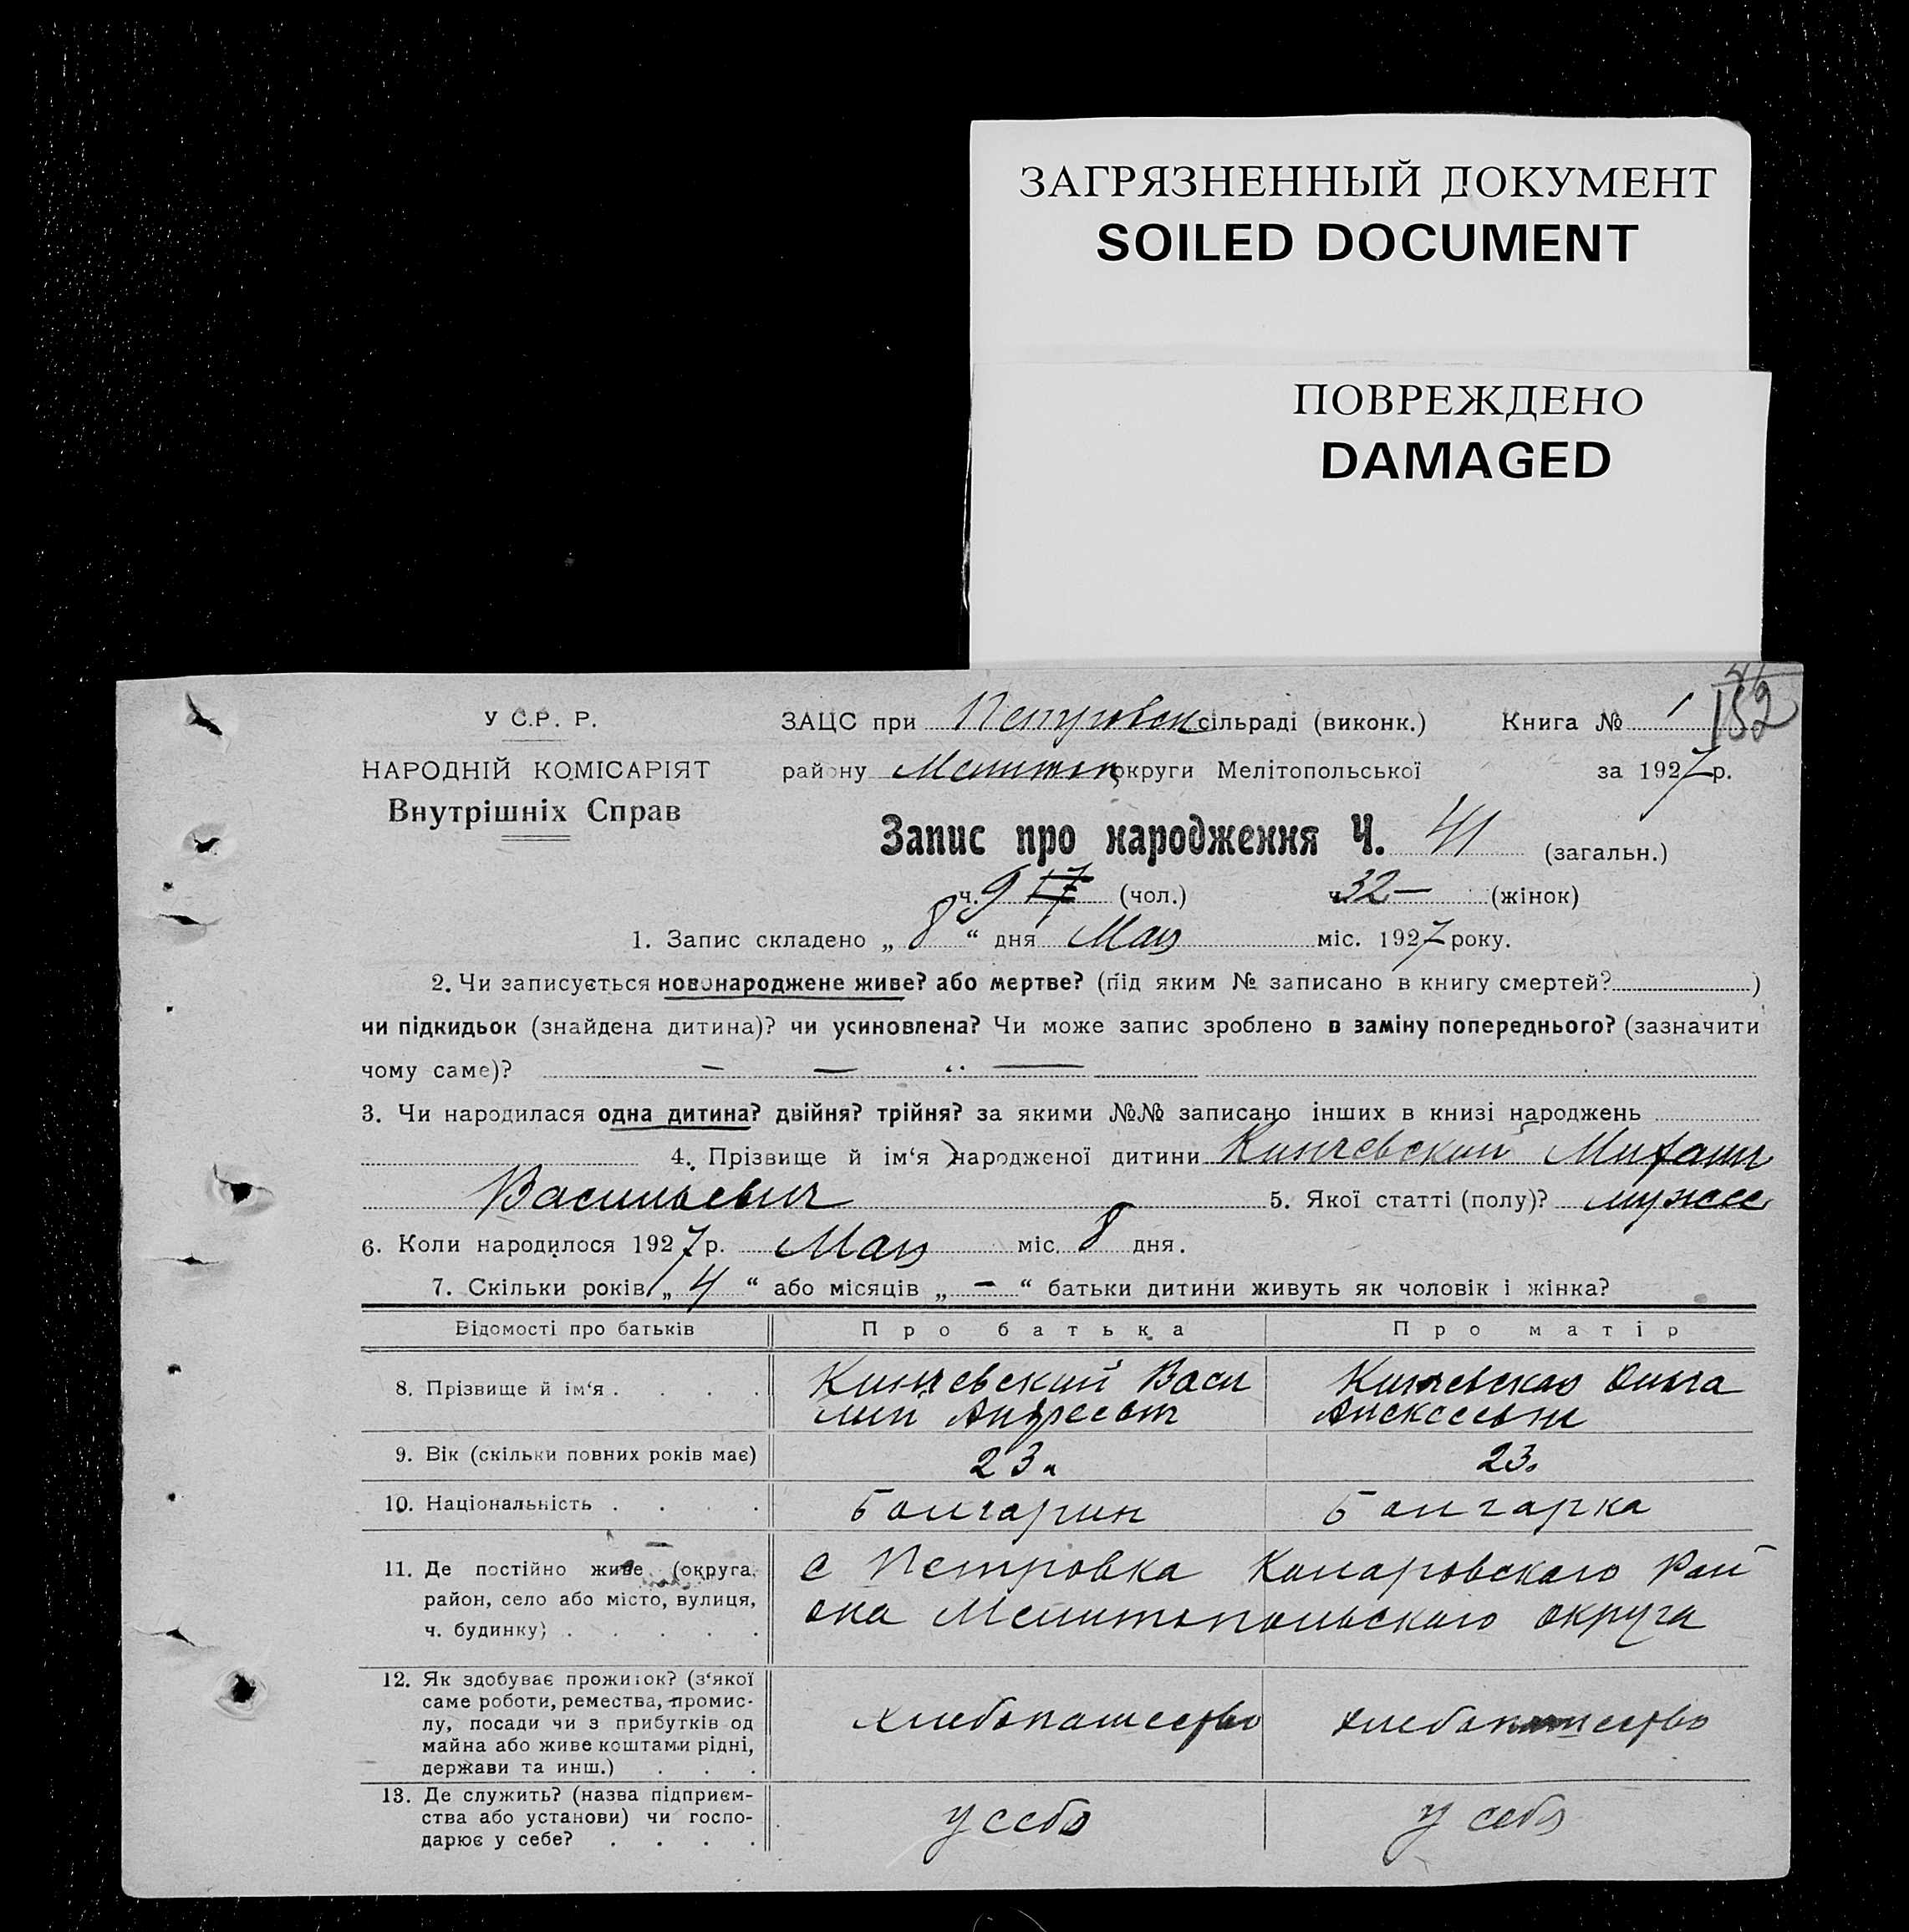 ЗАГРЯЗНЕННЫЙ ДОКУМЕНТ
SOILED DOCUMENT
ПОВРЕЖДЕНО
DAMAGED
152
У С.Р. Р.
НАРОДНІЙ КОМІСАРІЯТ
Внутрішніх Справ
ЗАЦС при Петровск сільраді (виконк.) Книга № 1
району Мелитоп округи Мелітопольської за 1927 р.
Запис про народження Ч. 41 (загальн.)
ч. 9 17 (чол.) ч 32 — (жінок)
1. Запис складено „ 8 “ дня Мая міс. 1927 року.
2. Чи записується новонароджене живе? або мертве? (під яким № записано в книгу смертей? )
чи підкидьок (знайдена дитина)? чи усиновлена? Чи може запис зроблено в заміну попереднього? (зазначити
чому саме)? — — „ —
3. Чи народилася одна дитина? двійня? трійня? за якими №№ записано інших в книзі народжень
4. Прізвище й ім‘я народженої дитини Кинчевский Михаил
Васильевич 5. Якої статті (полу)? мужск
6. Коли народилося 1927 р. Мая міс. 8 дня.
7. Скільки років „ 4 “ або місяців „ — “ батьки дитини живуть як чоловік і жінка?
Відомості про батьків Про батька Про матір
8. Прізвище й ім‘я . . . . Кинчевский Васи Кинчевская Ольга
лий Андреевич Алексеевн
9. Вік (скільки повних років має) 23. 23.
10. Національність . . . . Болгарин Болгарка
11. Де постійно живе (округа, с Петровка Комаровского Рай
район, село або місто, вулиця, она Мелитопольского округа
ч. будинку) . . . . .
12. Як здобуває прожиток? (з‘якої
саме роботи, ремества, промис-
лу, посади чи з прибутків од хлебопашество хлебопашество
майна або живе коштами рідні,
держави та инш.) . . .
13. Де служить? (назва підприєм-
ства або установи) чи госпо- у себя у себя
дарює у себе? . . . .